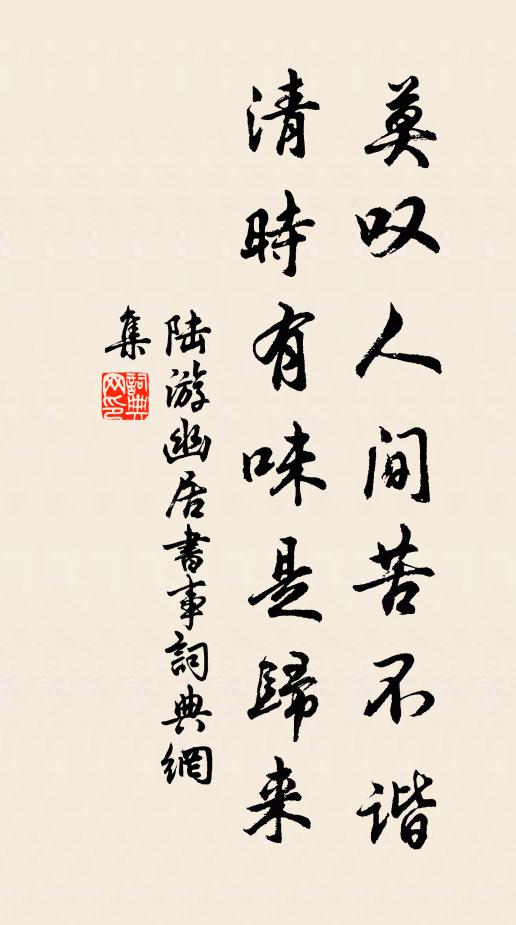 莫叹人间苦不谐
清時有味是歸来
陆游幽居書事詞典網
集
詞典网印